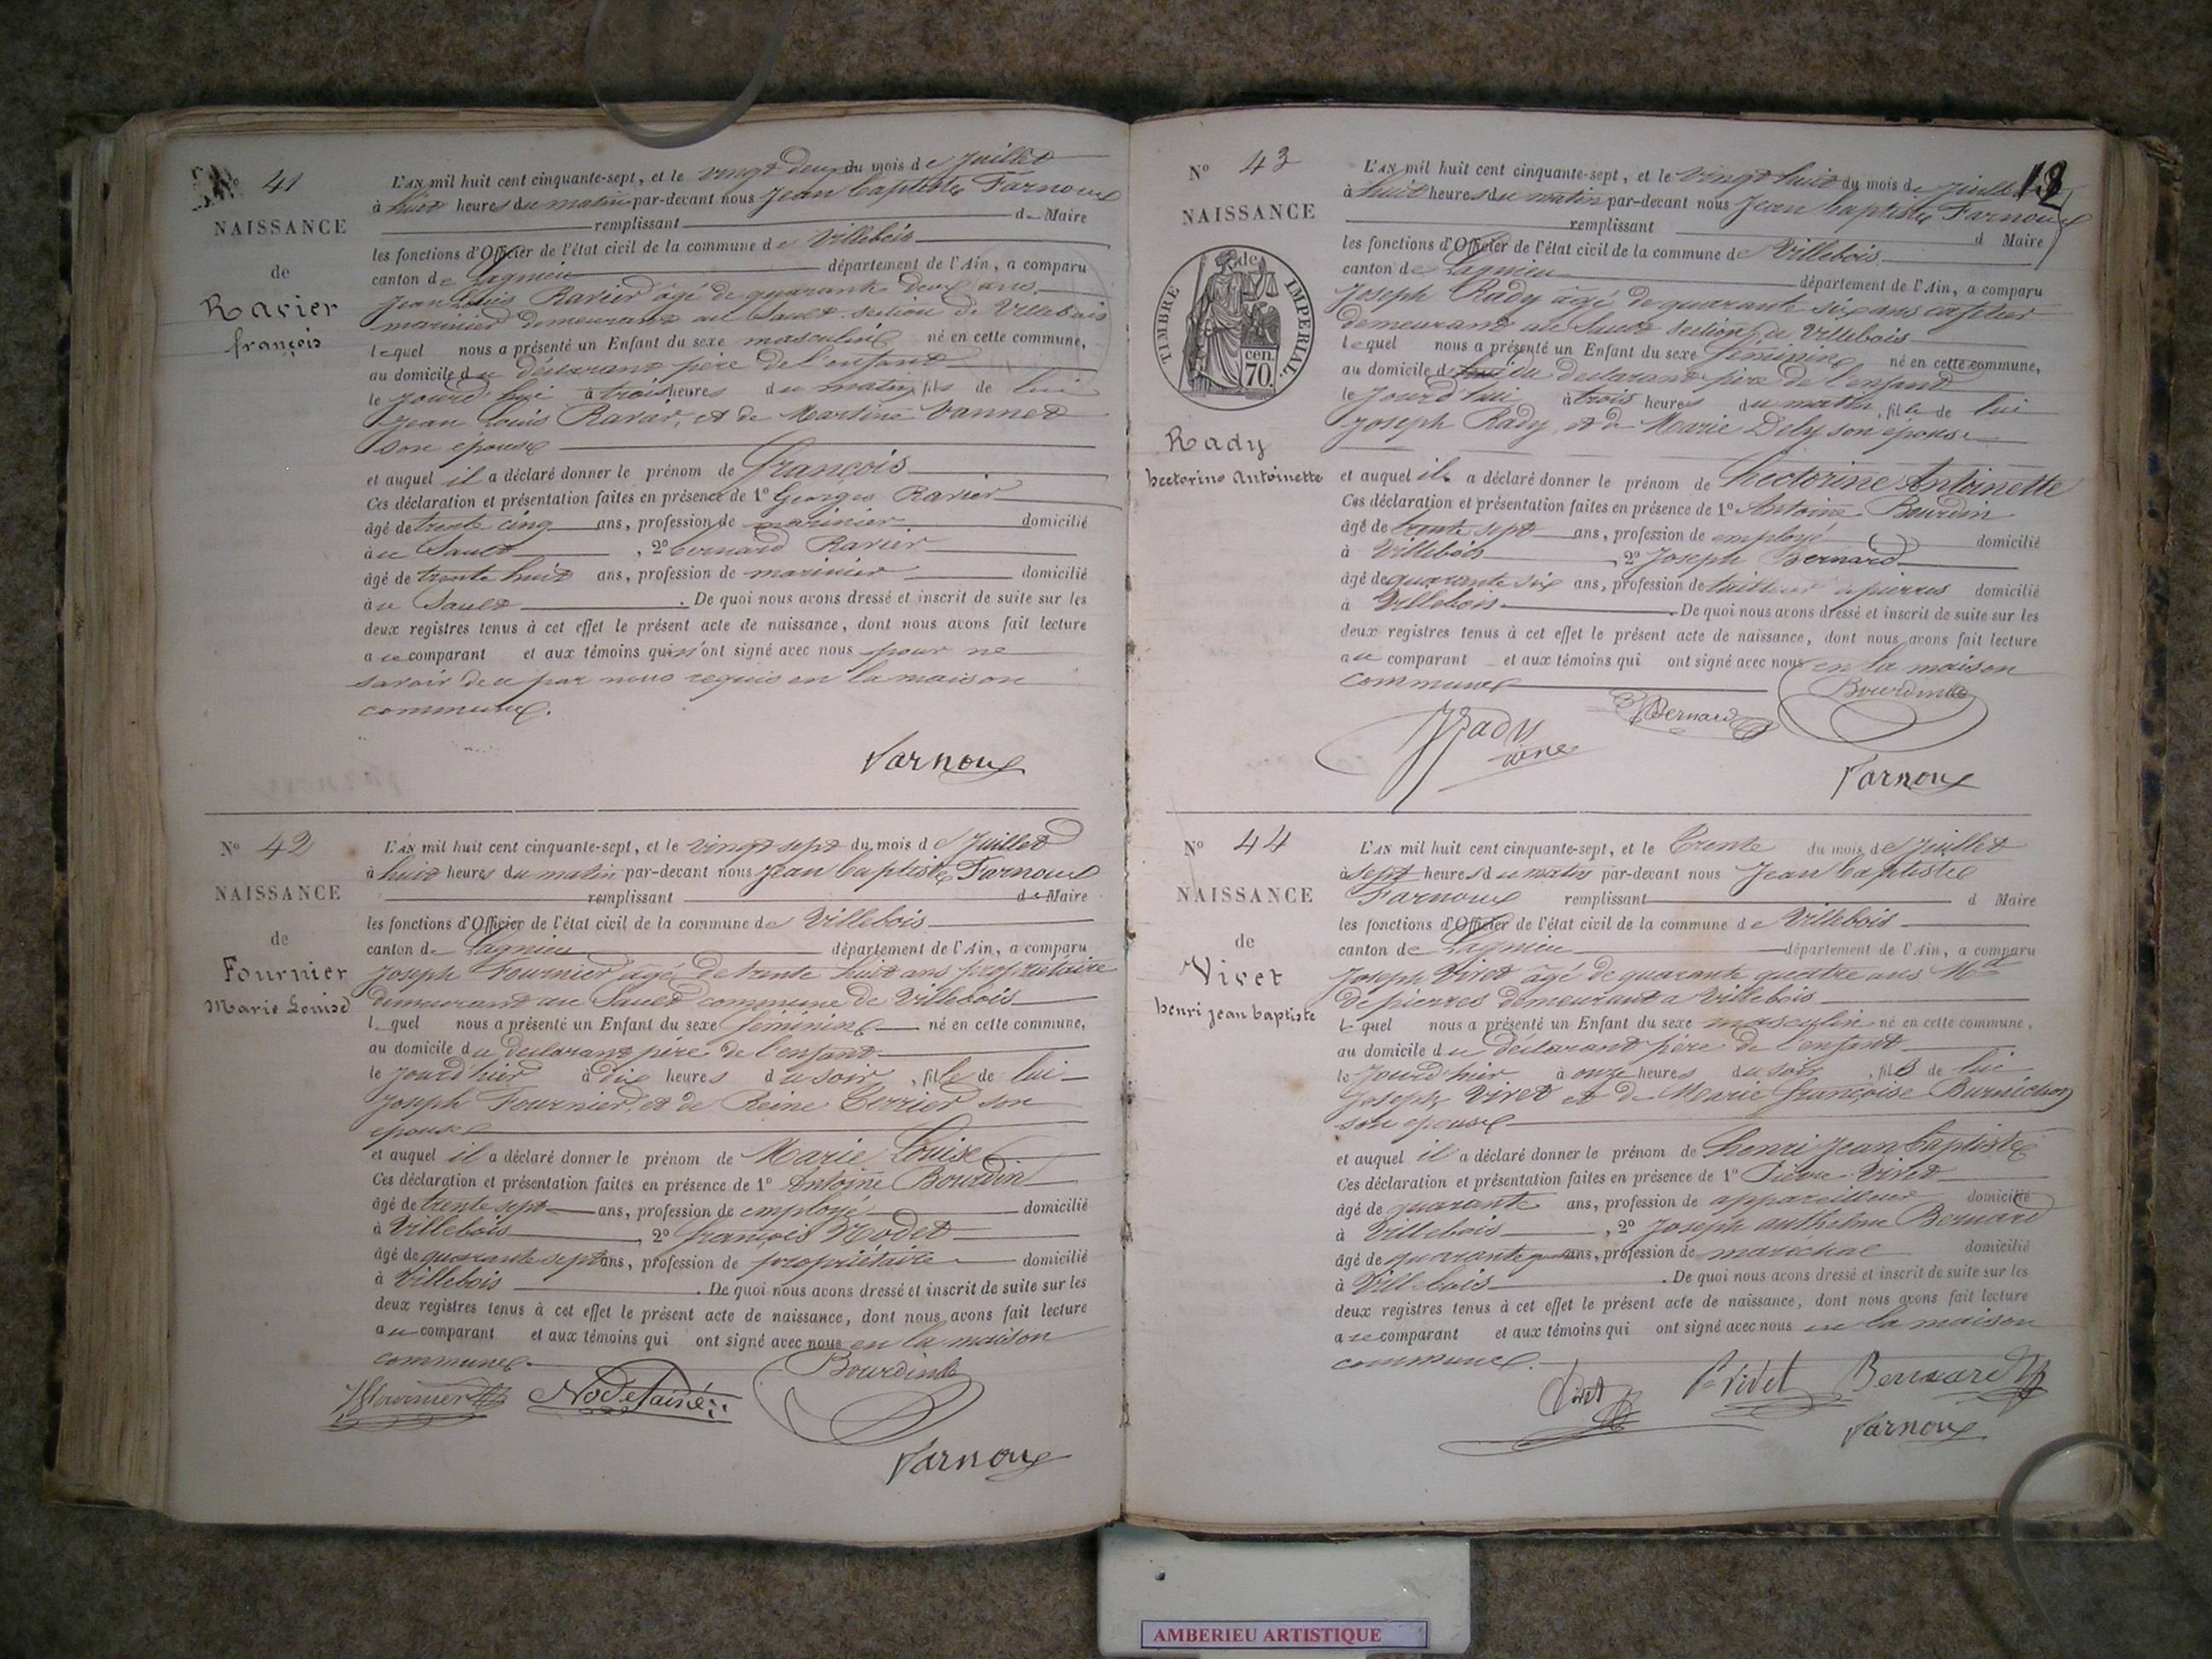 N° 41
NAISSANCE
de
Ravier
françois
L'AN mil huit cent cinquante-sept, et le vingt deux du mois de Juillet
à huit heures du matin par-devant nous Jean baptiste Farnoux
remplissant de Maire
les fonctions d'Officier de l'état civil de la commune de Villebois
canton de Lagnieu département de l'Ain, a comparu
Jean Louis Ravier âgé de quarante deux ans
marinier demeurant au Sault section de Villebois
lequel nous a présenté un Enfant du sexe masculin né en cette commune,
au domicile du déclarant père de l'enfant
le jourd'hui à trois heures du matin, fils de lui
Jean Louis Ravier, et de Martine Vannet
son epouse
et auquel il a déclaré donner le prénom de François
Ces déclaration et présentation faites en présence de 1° Georges Ravier
âgé de trente cinq ans, profession de marinier domicilié
à au Sault, 2° bernard Ravier
âgé de trente huit ans, profession de marinier domicilié
à au Sault. De quoi nous avons dressé et inscrit de suite sur les
deux registres tenus à cet effet le présent acte de naissance, dont nous avons fait lecture
au comparant et aux témoins qui n'ont signé avec nous pour ne
savoir de ce par nous requis en la maison
commune.
Farnoux
N° 42
NAISSANCE
de
Fournier
Marie Louise
L'AN mil huit cent cinquante-sept, et le vingt sept du mois de Juillet
à huit heures du matin par-devant nous Jean baptiste Farnoux
remplissant de Maire
les fonctions d'Officier de l'état civil de la commune de Villebois
canton de Lagnieu département de l'Ain, a comparu
Joseph Fournier âgé de trente huit ans propriétaire
demeurant au Sault commune de Villebois
lequel nous a présenté un Enfant du sexe féminin né en cette commune,
au domicile du declarant père de l'enfant
le jourd'hier à dix heures du soir, fille de lui
Joseph Fournier, et de Reine Terrier son
epouse
et auquel il a déclaré donner le prénom de Marie Louise
Ces déclaration et présentation faites en présence de 1° Antoine Bourdin
âgé de trente sept ans, profession de employé domicilié
à Villebois, 2° françois Nodet
âgé de quarante sept ans, profession de propriétaire domicilié
à Villebois. De quoi nous avons dressé et inscrit de suite sur les
deux registres tenus à cet effet le présent acte de naissance, dont nous avons fait lecture
au comparant et aux témoins qui ont signé avec nous en la maison
commune.
Bourdin
Fournier Nodet ainé
Farnoux
12
N° 43
NAISSANCE
de
TIMBRE IMPERIAL
70 cen.
Rady
hectorine Antoinette
L'AN mil huit cent cinquante-sept, et le vingt huit du mois de Juillet
à huit heures du matin par-devant nous Jean baptiste Farnoux
remplissant d Maire
les fonctions d'Officier de l'état civil de la commune de Villebois
canton de Lagnieu département de l'Ain, a comparu
Joseph Rady âgé de quarante six ans
demeurant au Sault section de Villebois
lequel nous a présenté un Enfant du sexe féminin né en cette commune,
au domicile du declarant père de l'enfant
le jourd'hui à trois heures du matin, fille de lui
Joseph Rady et de Marie Dely son epouse
et auquel il a déclaré donner le prénom de hectorine Antoinette
Ces déclaration et présentation faites en présence de 1° Antoine Bourdin
âgé de trente sept ans, profession de employé domicilié
à Villebois, 2° Joseph Bernard
âgé de quarante six ans, profession de tailleur de pierres domicilié
à Villebois. De quoi nous avons dressé et inscrit de suite sur les
deux registres tenus à cet effet le présent acte de naissance, dont nous avons fait lecture
au comparant et aux témoins qui ont signé avec nous en la maison
commune
Bourdin
Bernard
Rady
ainé
Farnoux
N° 44
NAISSANCE
de
Vivet
henri jean baptiste
L'AN mil huit cent cinquante-sept, et le Trente du mois de Juillet
à sept heures du matin par-devant nous Jean baptiste
Farnoux remplissant d Maire
les fonctions d'Officier de l'état civil de la commune de Villebois
canton de Lagnieu département de l'Ain, a comparu
Joseph Vivet âgé de quarante quatre ans Md
de pierres demeurant a Villebois
lequel nous a présenté un Enfant du sexe masculin né en cette commune,
au domicile du déclarant père de l'enfant
le jourd'hier à onze heures du soir, fils de lui
Joseph Vivet et de Marie françoise Burnichon
son epouse
et auquel il a déclaré donner le prénom de henri Jean baptiste
Ces déclaration et présentation faites en présence de 1° Pierre Vivet
âgé de quarante ans, profession de appareilleur domicilié
à Villebois, 2° Joseph anthelme Bernard
âgé de quarante ans, profession de marechal domicilié
à Villebois. De quoi nous avons dressé et inscrit de suite sur les
deux registres tenus à cet effet le présent acte de naissance, dont nous avons fait lecture
au comparant et aux témoins qui ont signé avec nous en la maison
commune.
Vivet P Vivet Bernard
Farnoux
AMBERIEU ARTISTIQUE